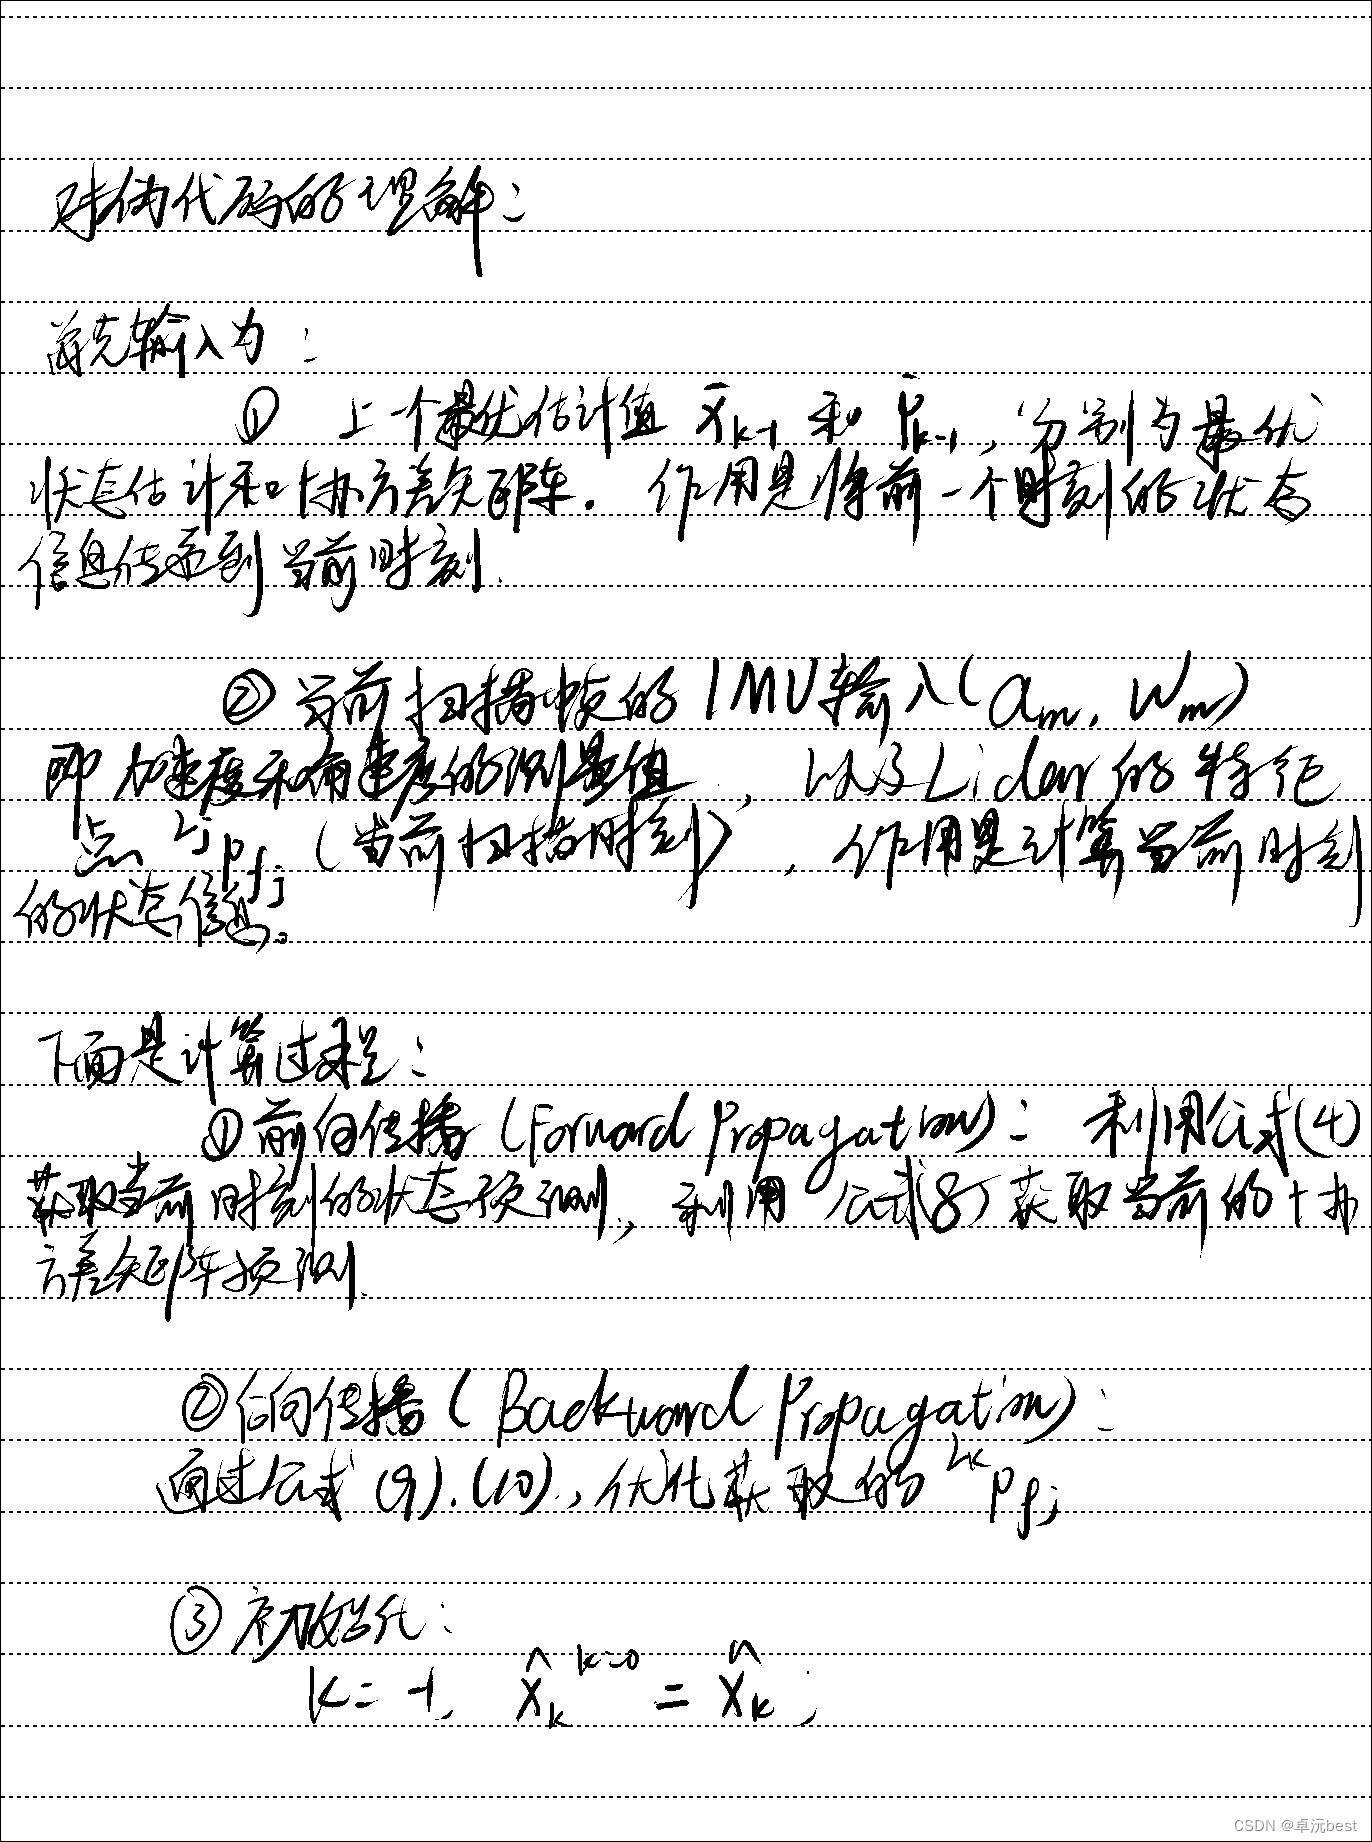 对伪代码的理解：
首先输入为：
① 上一个最优估计值 x̄ₖ₋₁ 和 P̄ₖ₋₁，分别为最优
状态估计和协方差矩阵. 作用是将前一个时刻的状态
信息传递到当前时刻.
② 当前扫描帧的IMU输入(aₘ, Wₘ)
即加速度和角速度的测量值，以及Lidar的特征
点 ᴸʲp_fj (当前扫描时刻)，作用是计算当前时刻
的状态信息。
下面是计算过程：
①前向传播 (Forward Propagation)： 利用公式(4)
获取当前时刻的状态预测，利用 公式8) 获取当前的协
方差矩阵预测.
②后向传播 (Backward Propagation)：
通过公式 (9).(10)，优化获取的 ᴸᵏp_fj
③ 初始化：
k = -1, x̂ₖᵏ⁼⁰ = x̂ₖ ;
CSDN @卓沅best